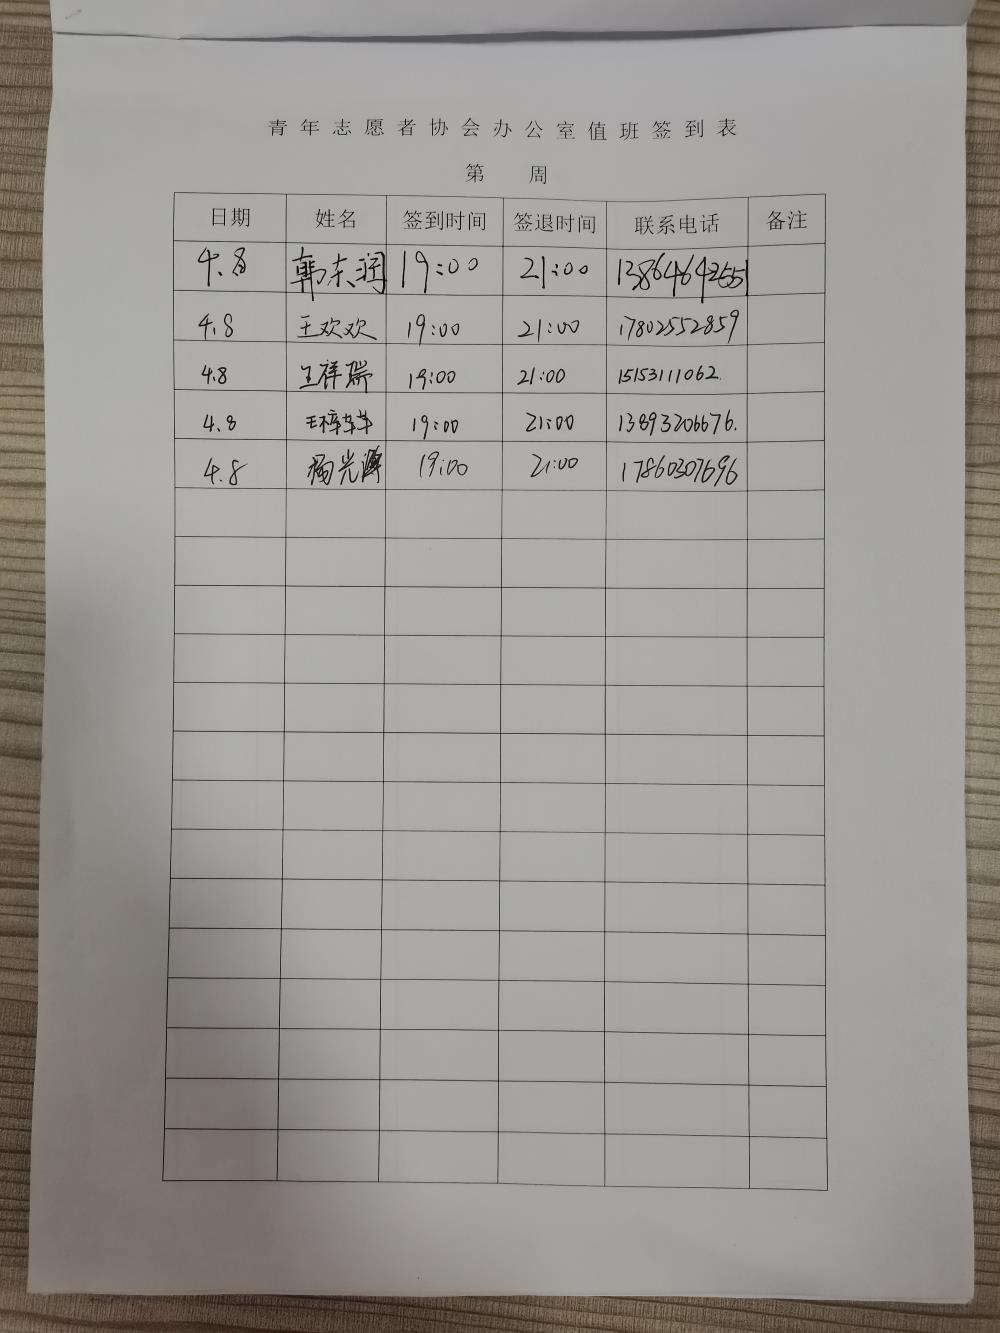 青年志愿者协会办公室值班签到表
第 周
日期 姓名 签到时间 签退时间 联系电话 备注
4.8 韩东润 19:00 21:00 13864642551
4.8 王欢欢 19:00 21:00 17802552859
4.8 王祥瑞 19:00 21:00 15153111062.
4.8 王梓 19:00 21:00 13893206676.
4.8 杨光 19:00 21:00 17860307696